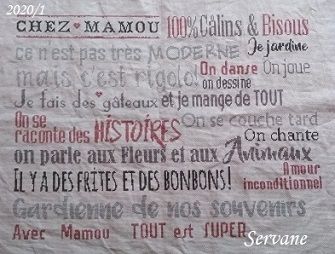 2020/1
CHEZ ♥ MAMOU 100% Câlins & Bisous
Je jardine
ce n'est pas très MODERNE
mais c'est rigolo! On danse On joue
on dessine
Je fais des gâteaux et je mange de TOUT
On se raconte des HISTOIRES
On se couche tard
On chante
on parle aux Fleurs et aux Animaux
IL Y A DES FRITES ET DES BONBONS!
Amour inconditionnel
Gardienne de nos souvenirs
Avec Mamou TOUT est SUPER
Servane